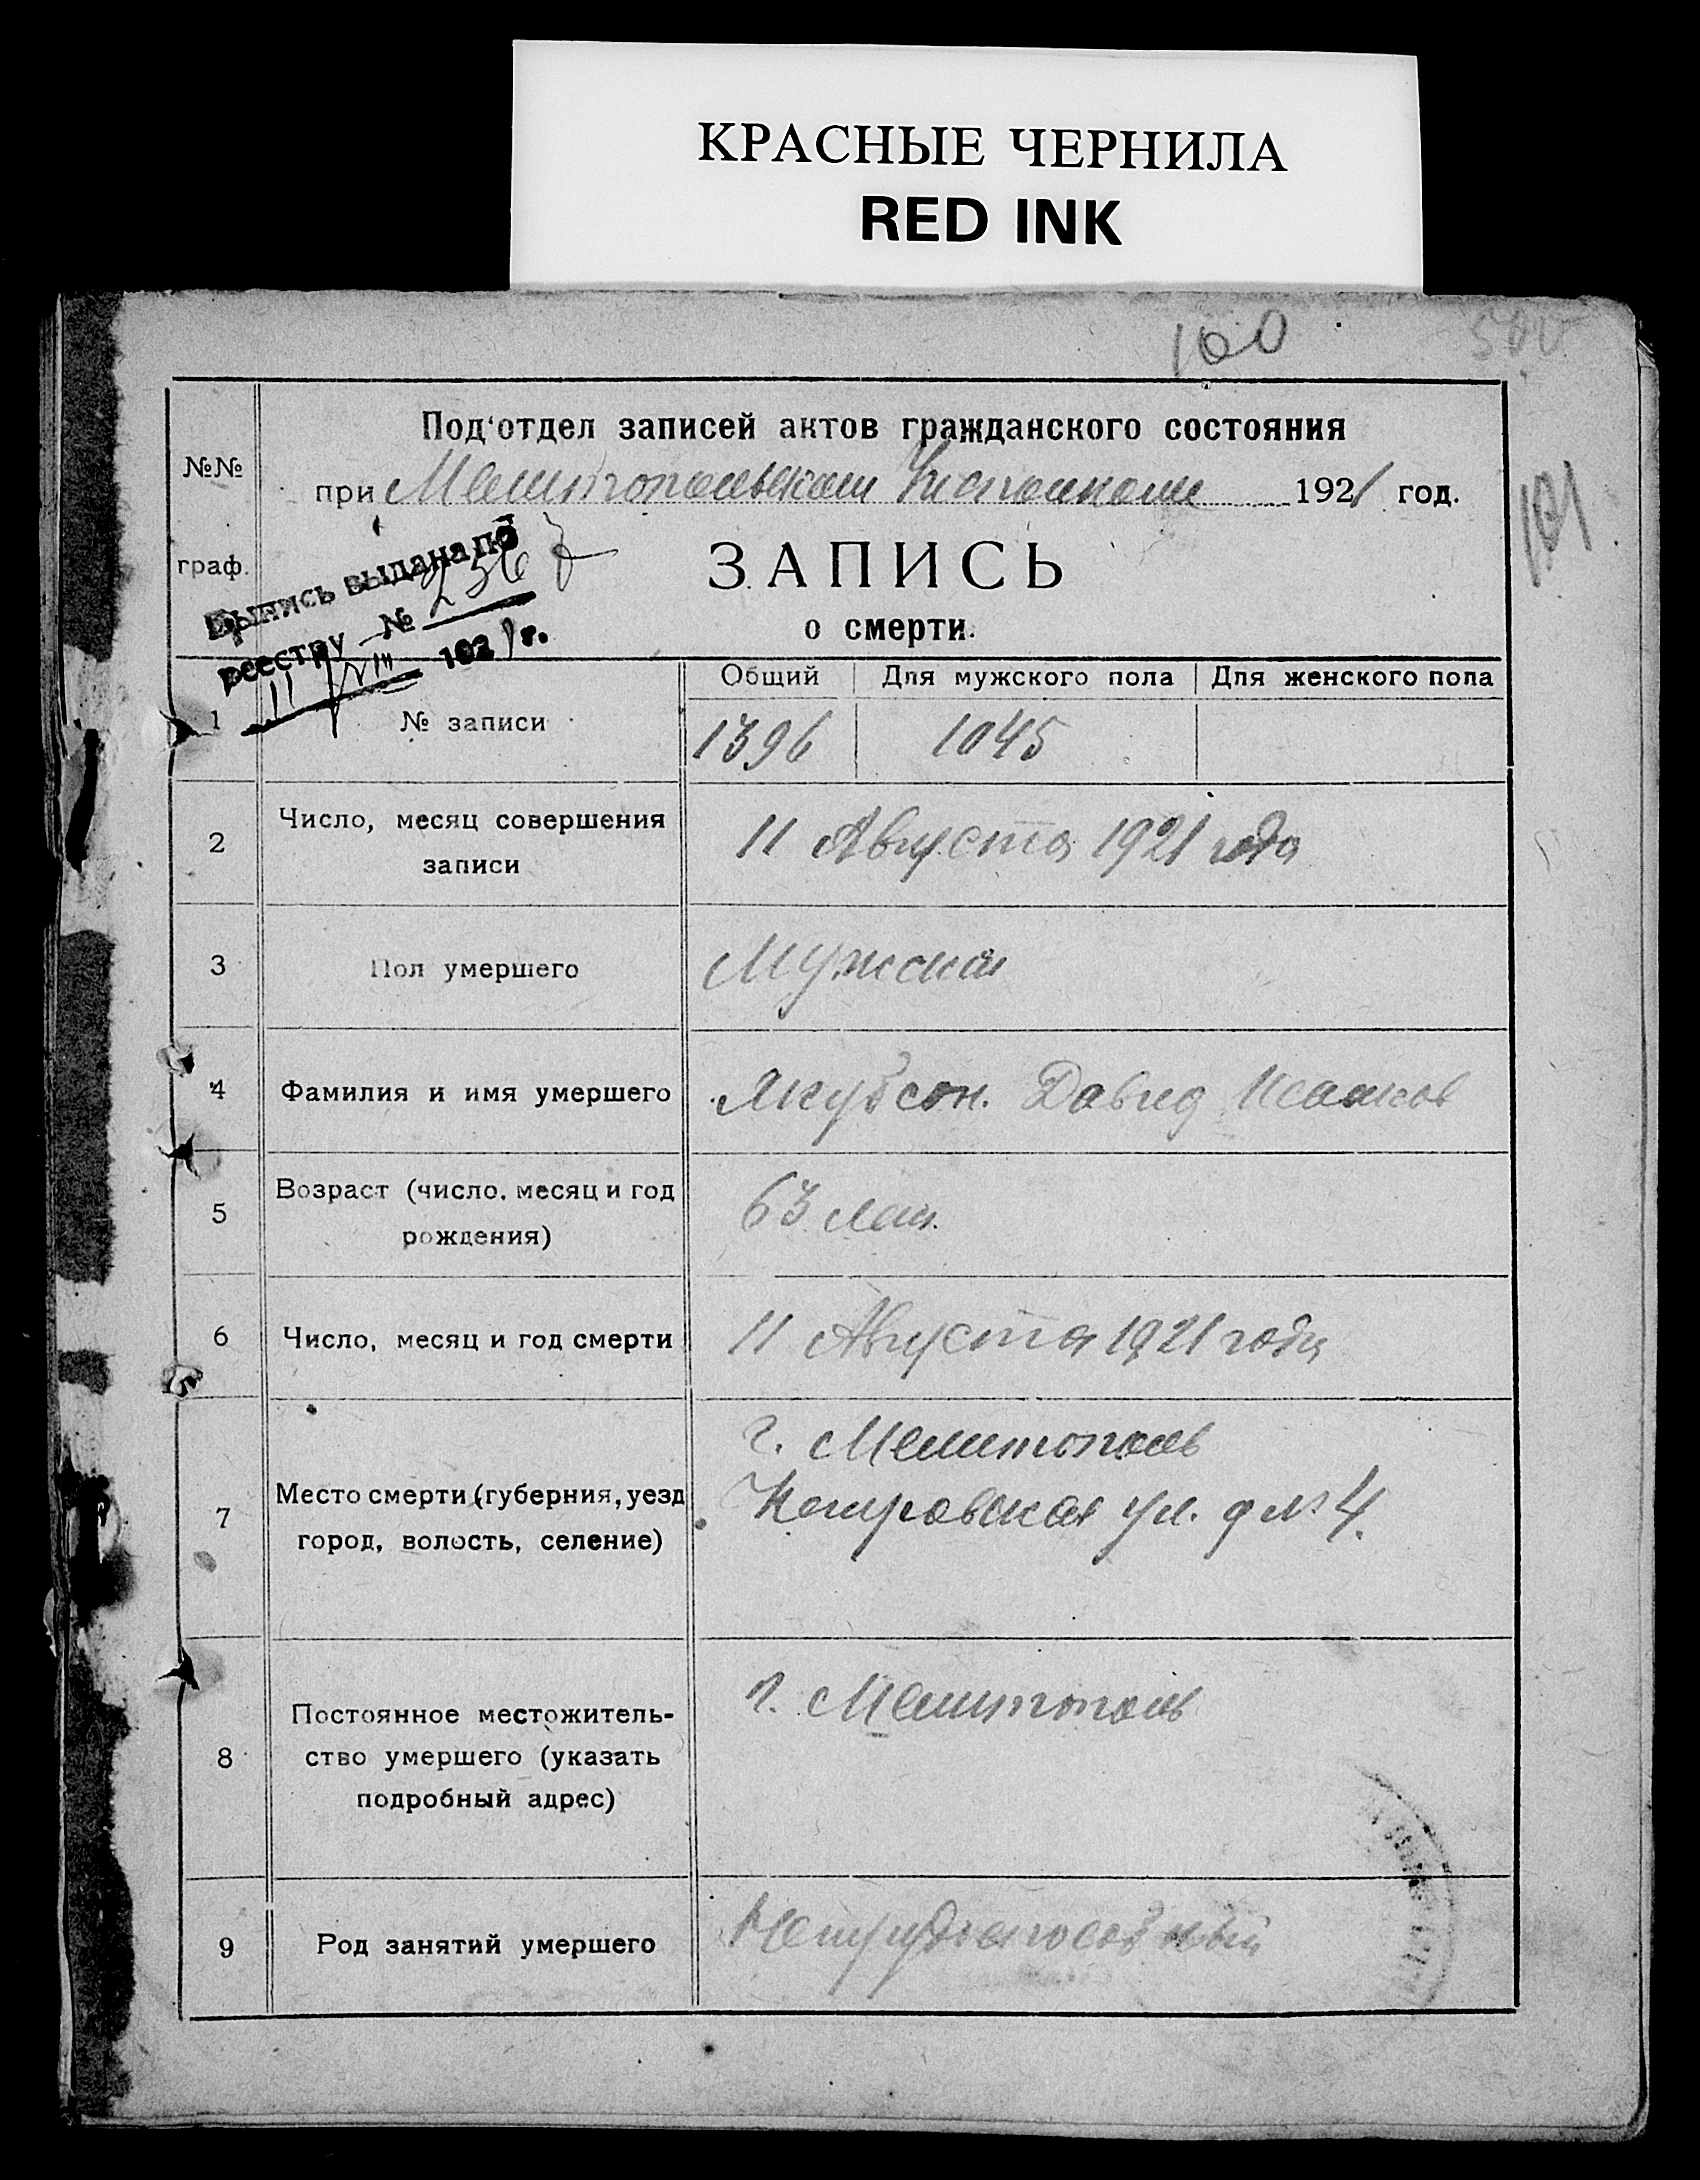 КРАСНЫЕ ЧЕРНИЛА
RED INK
100
101
№№
граф.
Под'отдел записей актов гражданского состояния
при Мелитопольском Исполкоме 1921 год.
Выпись выдана по
реестру № 2567
11/VIII 1921 г.
ЗАПИСЬ
о смерти.
Общий Для мужского пола Для женского пола
1 № записи 1396 1045
2 Число, месяц совершения
записи
11 Августа 1921 года
3 Пол умершего Мужской
4 Фамилия и имя умершего Якубсон. Давид Исааков
5 Возраст (число, месяц и год
рождения)
63 лет.
6 Число, месяц и год смерти 11 Августа 1921 года
7 Место смерти (губерния, уезд
город, волость, селение)
г. Мелитополь
ул. д № 4.
8 Постоянное местожитель-
ство умершего (указать
подробный адрес)
г. Мелитополь
9 Род занятий умершего Нетрудоспособный